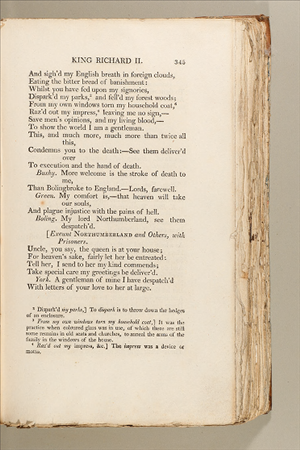 KING RICHARD II. 345
And sigh'd my English breath in foreign clouds,
Eating the bitter bread of banishment:
Whilst you have fed upon my signories,
Dispark'd my parks,² and fell'd my forest woods;
From my own windows torn my household coat,³
Raz'd out my impress,⁴ leaving me no sign,—
Save men's opinions, and my living blood,—
To show the world I am a gentleman.
This, and much more, much more than twice all
this,
Condemns you to the death:—See them deliver'd
over
To execution and the hand of death.
Bushy. More welcome is the stroke of death to
me,
Than Bolingbroke to England.—Lords, farewell.
Green. My comfort is,—that heaven will take
our souls,
And plague injustice with the pains of hell.
Boling. My lord Northumberland, see them
despatch'd.
[Exeunt NORTHUMBERLAND and Others, with
Prisoners.
Uncle, you say, the queen is at your house;
For heaven's sake, fairly let her be entreated:
Tell her, I send to her my kind commends;
Take special care my greetings be deliver'd.
York. A gentleman of mine I have despatch'd
With letters of your love to her at large.
² Dispark'd my parks,] To dispark is to throw down the hedges
of an enclosure.
³ From my own windows torn my household coat,] It was the
practice when coloured glass was in use, of which there are still
some remains in old seats and churches, to anneal the arms of the
family in the windows of the house.
⁴ Raz'd out my impress, &c.] The impress was a device or
motto.